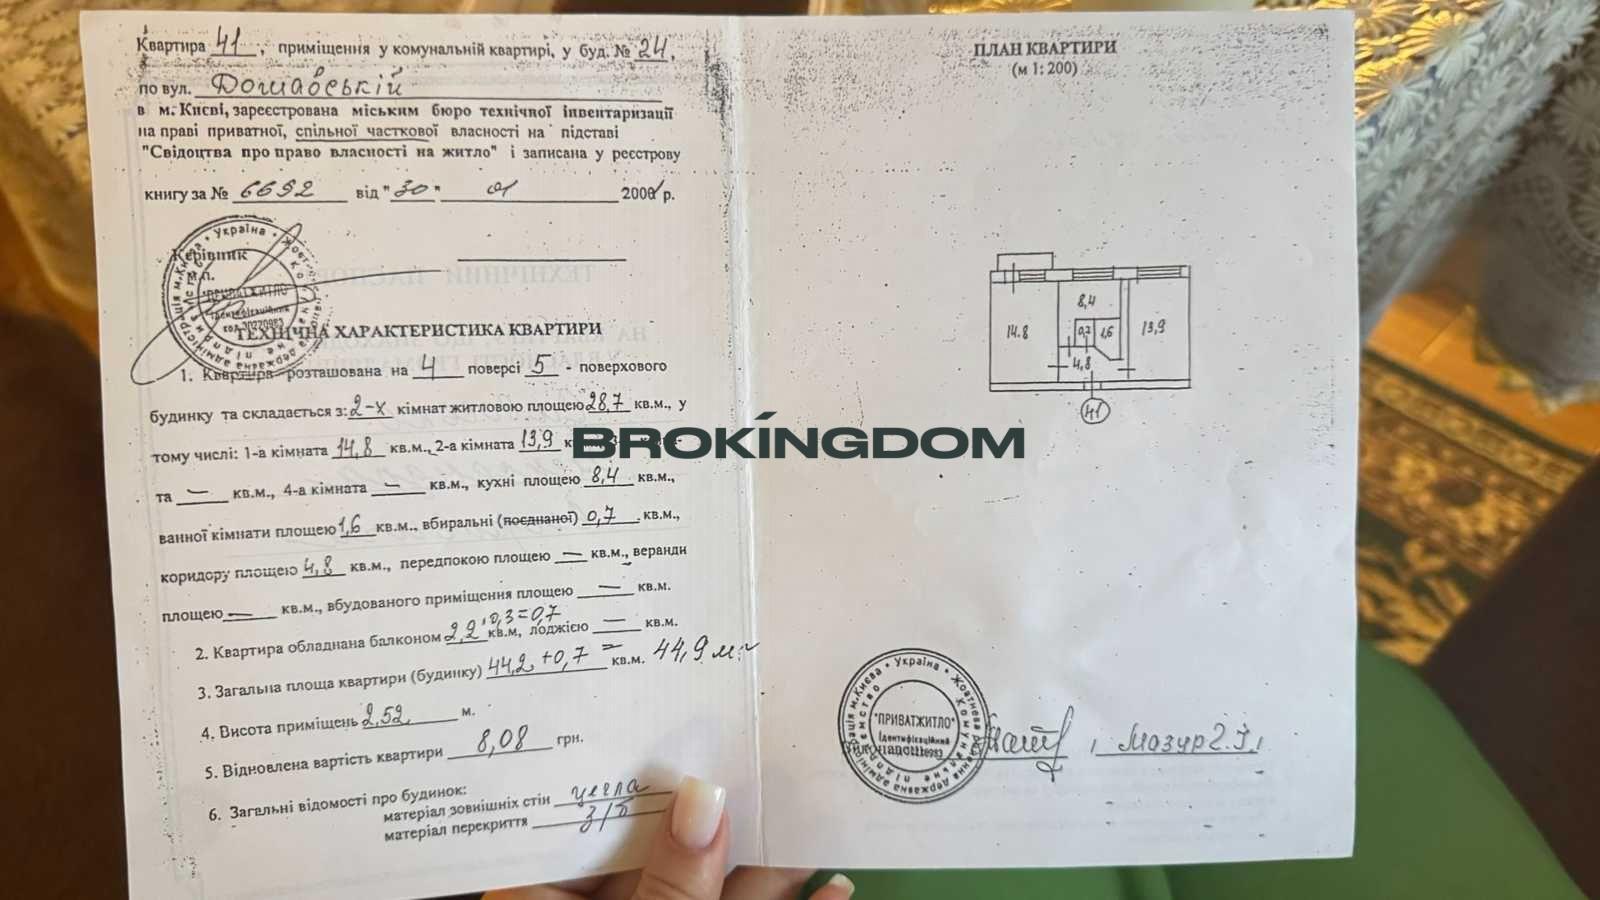 Квартира 41, приміщення у комунальній квартирі, у буд. № 24,
по вул. Дошавській
в м. Києві, зареєстрована міським бюро технічної інвентаризації
на праві приватної, спільної часткової власності на підставі
"Свідоцтва про право власності на житло" і записана у реєстрову
книгу за № 6692 від "30" 01 2001 р.
Керівник
м.п.
ТЕХНІЧНА ХАРАКТЕРИСТИКА КВАРТИРИ
1. Квартира розташована на 4 поверсі 5 - поверхового
будинку та складається з: 2-х кімнат житловою площею 28,7 кв.м., у
тому числі: 1-а кімната 14,8 кв.м., 2-а кімната 13,9
та — кв.м., 4-а кімната — кв.м., кухні площею 8,4 кв.м.,
ванної кімнати площею 1,6 кв.м., вбиральні (поєднаної) 0,7 кв.м.,
коридору площею 4,8 кв.м., передпокою площею — кв.м., веранди
площею — кв.м., вбудованого приміщення площею — кв.м.
2. Квартира обладнана балконом 2,2·0,3=0,7 кв.м, лоджією — кв.м.
3. Загальна площа квартири (будинку) 44,2+0,7= кв.м. 44,9 м²
4. Висота приміщень 2,52 м.
5. Відновлена вартість квартири 8,08 грн.
6. Загальні відомості про будинок:
матеріал зовнішніх стін цегла
матеріал перекриття з/б
ПЛАН КВАРТИРИ
(м 1: 200)
14.8
8,4
0,7
1,6
13,9
4,8
41
BROKINGDOM
Україна
"ПРИВАТЖИТЛО"
Ідентифікаційний
код 30220983
Україна
"ПРИВАТЖИТЛО"
Ідентифікаційний
Мазур